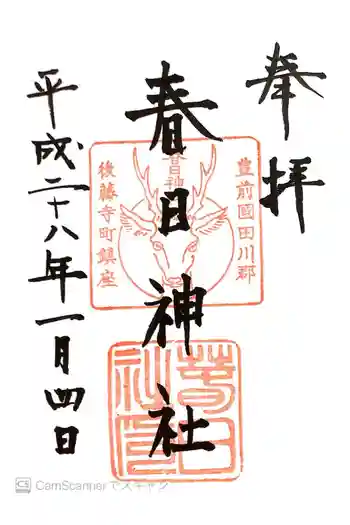 奉拝
豊前國田川郡
春日神社
春日神
後藤寺町鎮座
平成二十八年一月四日
CS CamScannerでスキャン